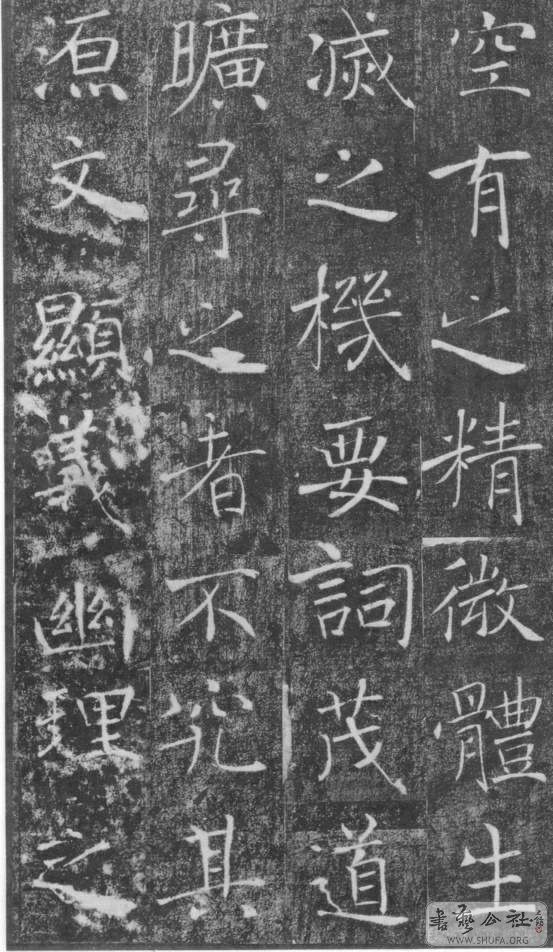 空有之精微體生
滅之機要詞茂道
曠尋之者不究其
源文顯義幽理之
書藝公社
WWW.SHUFA.ORG